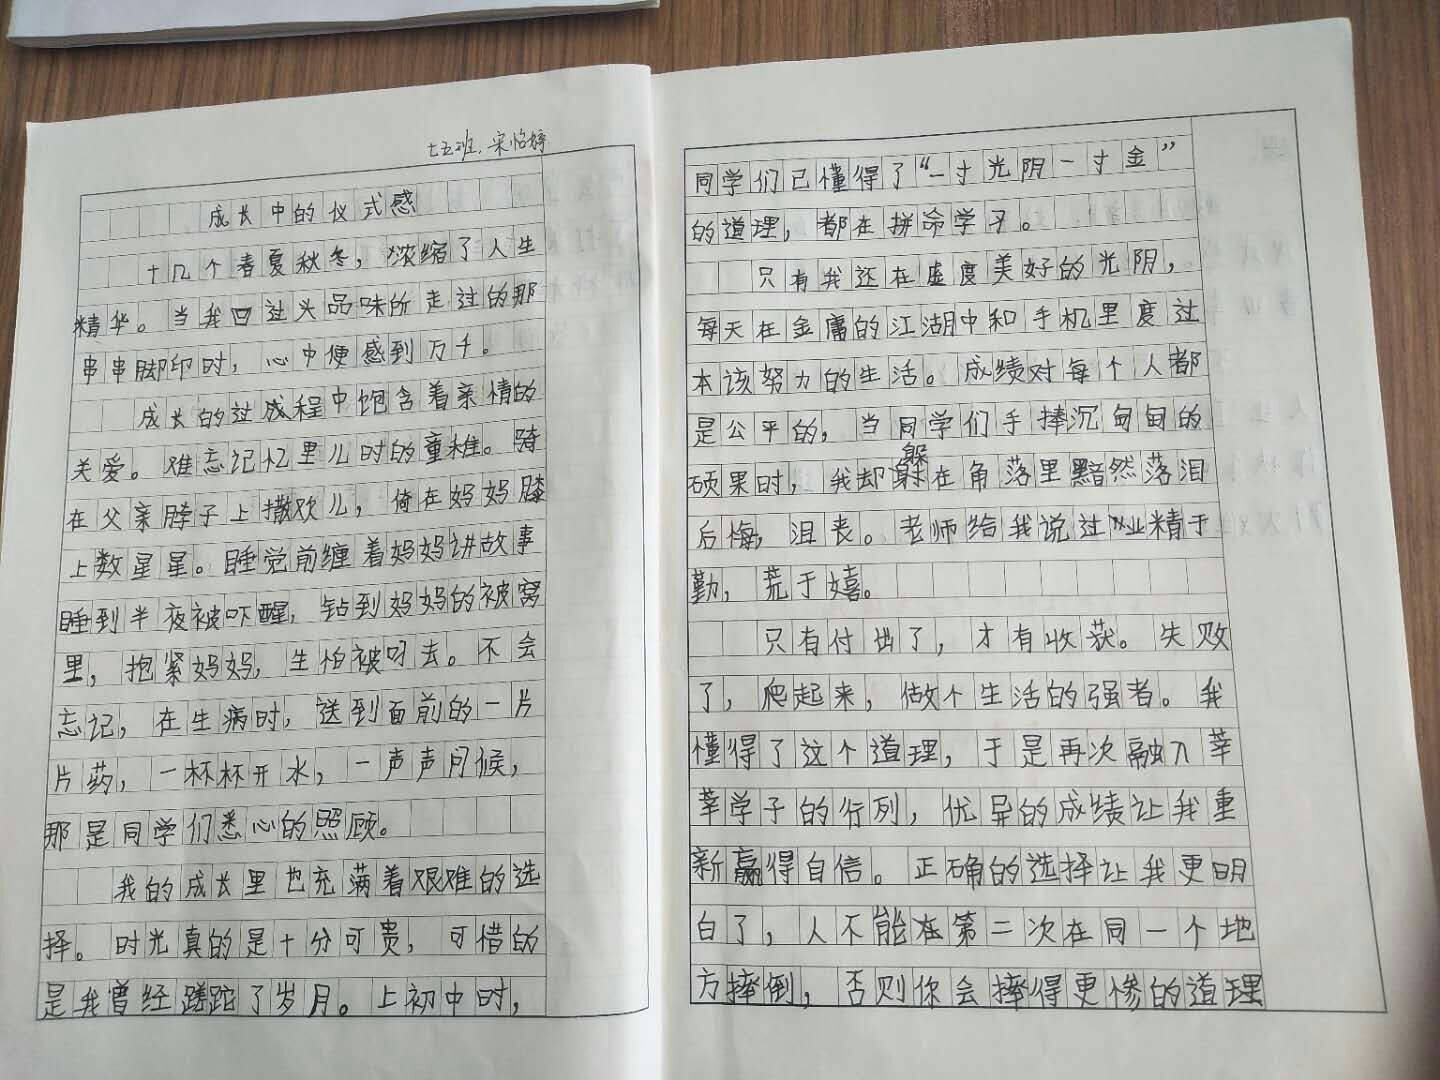 七五班. 宋怡婷
成长中的仪式感
十几个春夏秋冬，浓缩了人生
精华。当我回过头品味所走过的那
串串脚印时，心中便感到万千。
成长的过成程中饱含着亲情的
关爱。难忘记忆里儿时的童稚。骑
在父亲脖子上撒欢儿，倚在妈妈膝
上数星星。睡觉前缠着妈妈讲故事
睡到半夜被吓醒，钻到妈妈的被窝
里，抱紧妈妈，生怕被叼去。不会
忘记，在生病时，送到面前的一片
片药，一杯杯开水，一声声问候，
那是同学们悉心的照顾。
我的成长里也充满着艰难的选
择。时光真的是十分可贵，可惜的
是我曾经蹉跎了岁月。上初中时，
同学们已懂得了“一寸光阴一寸金”
的道理，都在拼命学习。
只有我还在虚度美好的光阴，
每天在金庸的江湖中和手机里度过
本该努力的生活。成绩对每个人都
是公平的，当同学们手捧沉甸甸的
硕果时，我却躲在角落里黯然落泪
后悔，沮丧。老师给我说过“业精于
勤，荒于嬉。
只有付出了，才有收获。失败
了，爬起来，做个生活的强者。我
懂得了这个道理，于是再次融入莘
莘学子的行列，优异的成绩让我重
新赢得自信。正确的选择让我更明
白了，人不能在第二次在同一个地
方摔倒，否则你会摔得更惨的道理